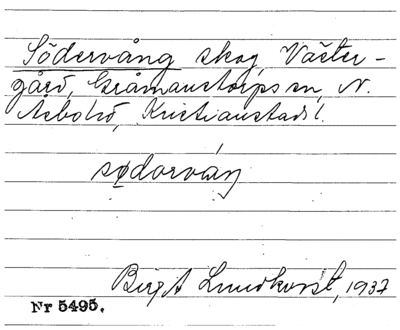 Södervång skog, Väster-
gård, Gråmanstorps sn, N.
Åsbohd, Kristianstads l.
sødorváŋ
Birgit Lundkvist, 1937
Nr 5495.